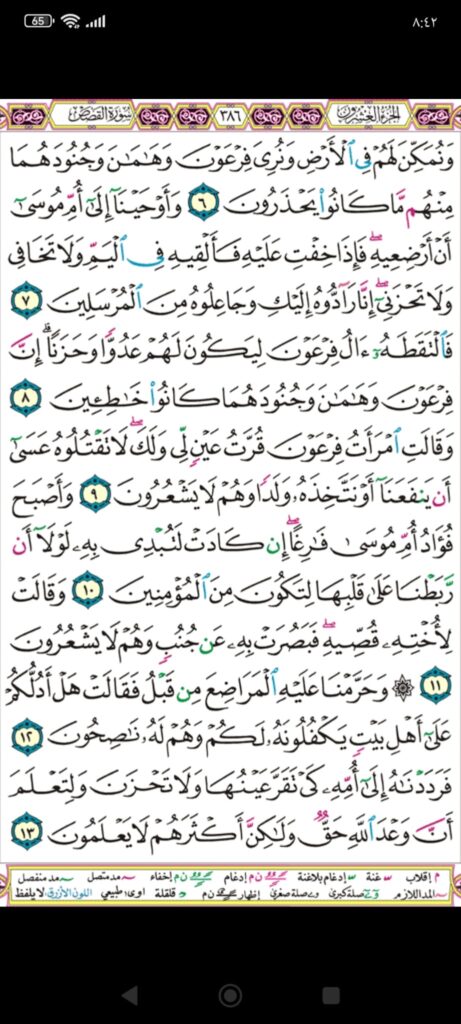 65
٨:٤٢
الجزء العشرون
٣٨٦
سورة القصص
وَنُمَكِّنَ لَهُمْ فِي الْأَرْضِ وَنُرِيَ فِرْعَوْنَ وَهَامَانَ وَجُنُودَهُمَا
مِنْهُم مَّا كَانُوا يَحْذَرُونَ ٦ وَأَوْحَيْنَا إِلَىٰ أُمِّ مُوسَىٰ
أَنْ أَرْضِعِيهِ ۖ فَإِذَا خِفْتِ عَلَيْهِ فَأَلْقِيهِ فِي الْيَمِّ وَلَا تَخَافِي
وَلَا تَحْزَنِي ۖ إِنَّا رَادُّوهُ إِلَيْكِ وَجَاعِلُوهُ مِنَ الْمُرْسَلِينَ ٧
فَالْتَقَطَهُ ءَالُ فِرْعَوْنَ لِيَكُونَ لَهُمْ عَدُوًّا وَحَزَنًا ۗ إِنَّ
فِرْعَوْنَ وَهَامَانَ وَجُنُودَهُمَا كَانُوا خَاطِئِينَ ٨
وَقَالَتِ امْرَأَتُ فِرْعَوْنَ قُرَّتُ عَيْنٍ لِّي وَلَكَ ۖ لَا تَقْتُلُوهُ عَسَىٰ
أَن يَنفَعَنَا أَوْ نَتَّخِذَهُ وَلَدًا وَهُمْ لَا يَشْعُرُونَ ٩ وَأَصْبَحَ
فُؤَادُ أُمِّ مُوسَىٰ فَارِغًا ۖ إِن كَادَتْ لَتُبْدِي بِهِ لَوْلَا أَن
رَّبَطْنَا عَلَىٰ قَلْبِهَا لِتَكُونَ مِنَ الْمُؤْمِنِينَ ١٠ وَقَالَتْ
لِأُخْتِهِ قُصِّيهِ ۖ فَبَصُرَتْ بِهِ عَن جُنُبٍ وَهُمْ لَا يَشْعُرُونَ
١١ ۞ وَحَرَّمْنَا عَلَيْهِ الْمَرَاضِعَ مِن قَبْلُ فَقَالَتْ هَلْ أَدُلُّكُمْ
عَلَىٰ أَهْلِ بَيْتٍ يَكْفُلُونَهُ لَكُمْ وَهُمْ لَهُ نَاصِحُونَ ١٢
فَرَدَدْنَاهُ إِلَىٰ أُمِّهِ كَيْ تَقَرَّ عَيْنُهَا وَلَا تَحْزَنَ وَلِتَعْلَمَ
أَنَّ وَعْدَ اللَّهِ حَقٌّ وَلَٰكِنَّ أَكْثَرَهُمْ لَا يَعْلَمُونَ ١٣
م إقلاب غنة إدغام بلاغنة ن م إدغام ن م إخفاء مد متصل مد منفصل
المد اللازم صلة كبرى صلة صغرى إظهار ن م قلقلة اوى: طبيعي اللون الأزرق: لا يلفظ